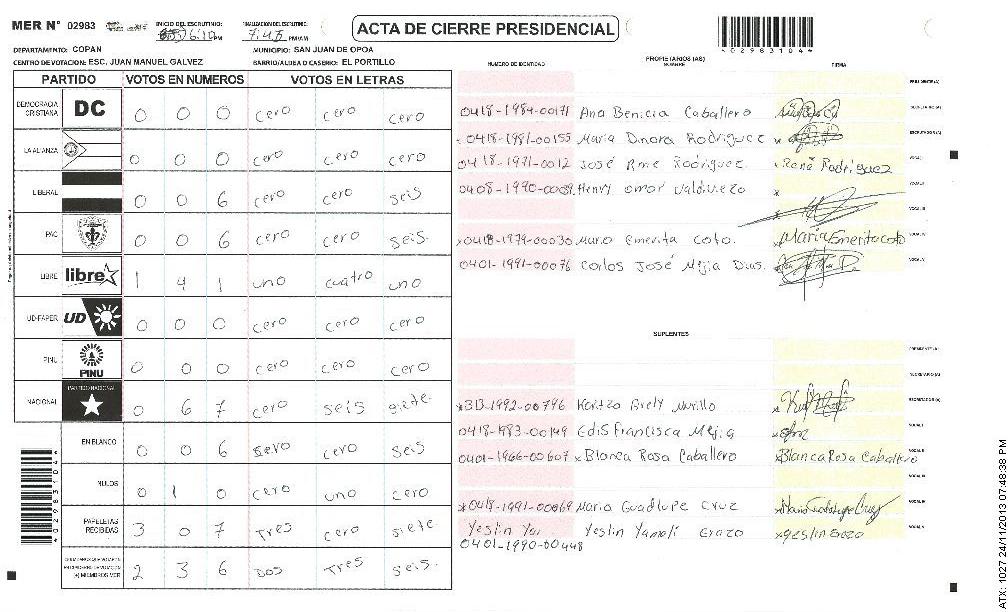 MER Nº 02983
INICIO DEL ESCRUTINIO: 6:10 PM
FINALIZACION DEL ESCRUTINIO: 7:45 PM/AM
ACTA DE CIERRE PRESIDENCIAL
4029831044
DEPARTAMENTO: COPAN
MUNICIPIO: SAN JUAN DE OPOA
CENTRO DE VOTACION: ESC. JUAN MANUEL GALVEZ
BARRIO/ALDEA O CASERIO: EL PORTILLO
PARTIDO VOTOS EN NUMEROS VOTOS EN LETRAS
DEMOCRACIA CRISTIANA DC 0 0 0 cero cero cero
LA ALIANZA 0 0 0 cero cero cero
LIBERAL 0 0 6 cero cero seis
PAC 0 0 6 cero cero seis.
LIBRE libre 1 4 1 uno cuatro uno
UD-FAPER UD 0 0 0 cero cero cero
PINU PINU 0 0 0 cero cero cero
NACIONAL PARTIDO NACIONAL 0 6 7 cero seis siete.
EN BLANCO 0 0 6 sero cero seis
NULOS 0 1 0 cero uno cero
PAPELETAS RECIBIDAS 3 0 7 Tres cero siete
2 3 6 Dos Tres seis.
NUMERO DE IDENTIDAD
PROPIETARIOS (AS)
NOMBRE
FIRMA
PRESIDENTE(A)
0418-1984-00171 Ana Benicia Caballero SECRETARIO(A)
0418-1981-00155 Maria Dinora Rodriguez ESCRUTADOR(A)
0418-1971-0012 José Rene Rodriguez. René Rodríguez VOCAL I
Henry omar Valdiviezo VOCAL II
VOCAL III
0418-1979-00030 Maria Emerita coto. Maria Emerita coto VOCAL IV
0401-1991-00076 Carlos José Mejia Dias. VOCAL V
SUPLENTES
PRESIDENTE(A)
SECRETARIO(A)
Brely Murillo ESCRUTADOR(A)
Edis Francisca Mejia VOCAL I
0401-1966-00607 Blanca Rosa Caballero Blanca Rosa Caballero VOCAL II
VOCAL III
0418-1991-00069 Maria Guadlupe Cruz VOCAL IV
Yeslin Ya Yeslin Yamali Erazo yeslin Erazo VOCAL V
0401-1990-00448
4029831044
ATX: 1027 24/11/2013 07:48:38 PM